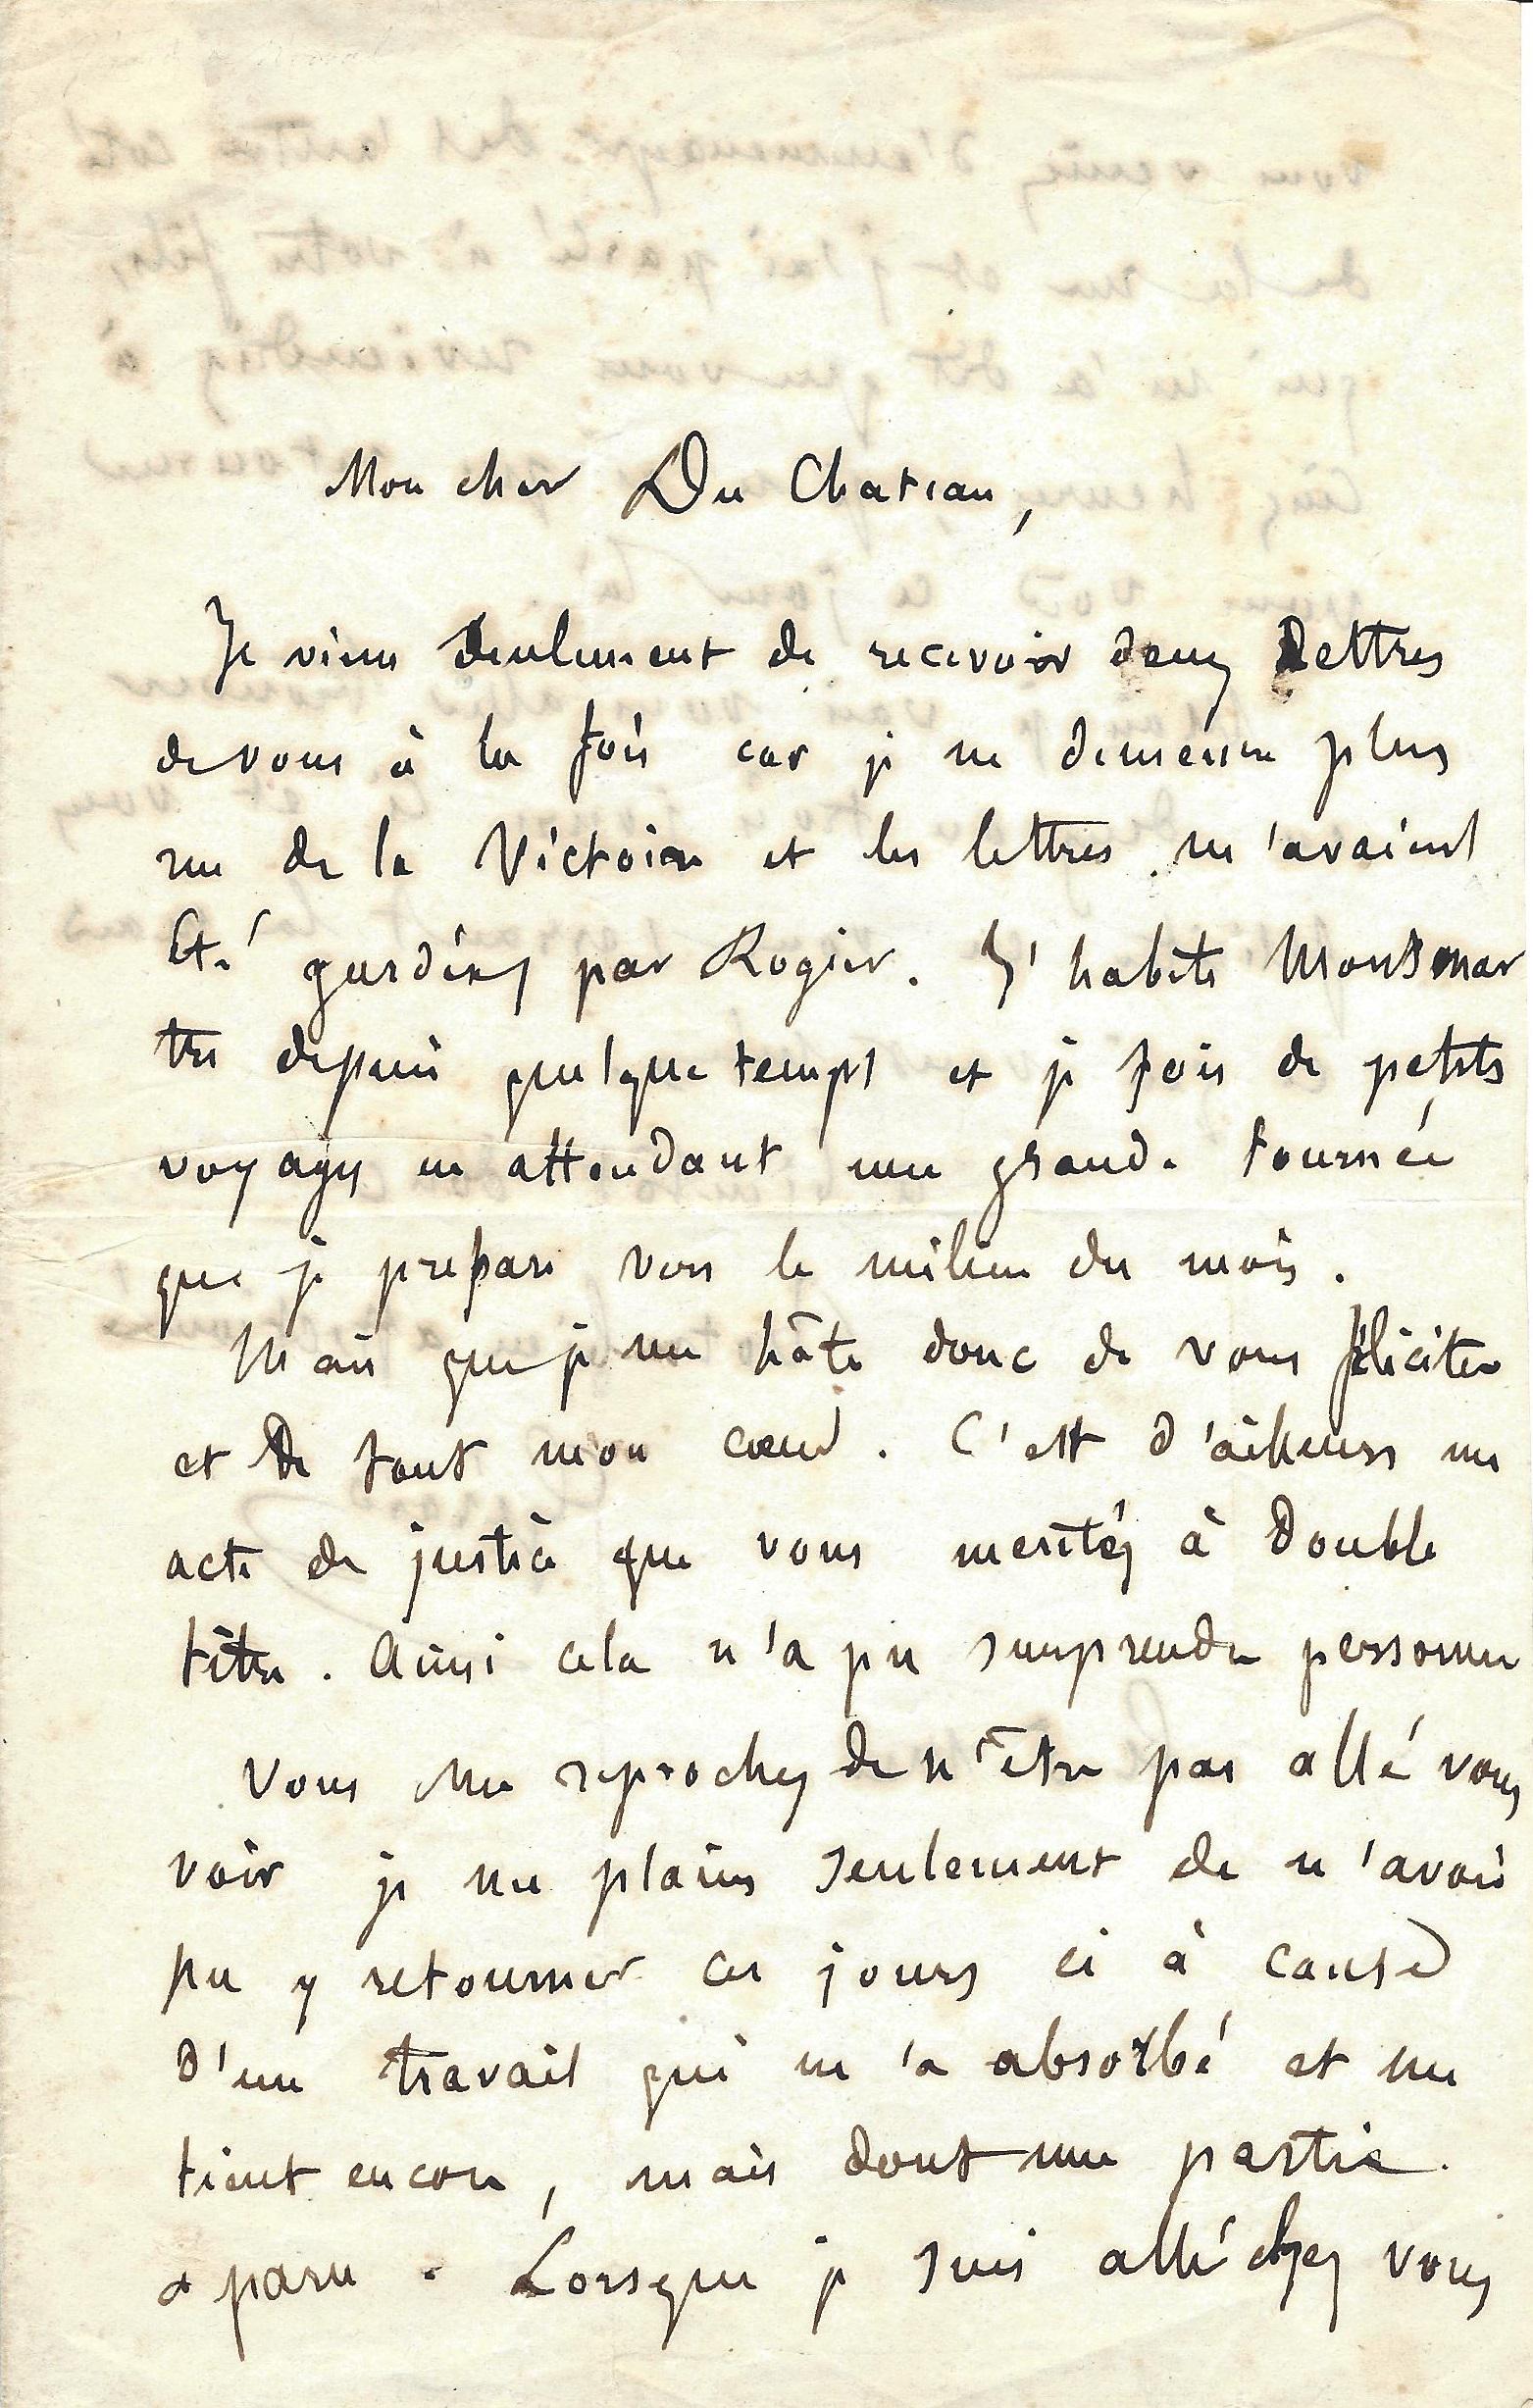 Mon cher Du Chateau,
Je viens seulement de recevoir deux lettres
de vous à la fois car je ne demeure plus
rue de la Victoire et les lettres m'avaient
Eté gardées par Rogier. J'habite Montmar
tre depuis quelque temps et je fais de petits
voyages en attendant une grande tournée
que je prepare vers le milieu du mois.
Mais que je me hâte donc de vous féliciter
et de tout mon cœur. C'est d'ailleurs un
acte de justice que vous meritéz à double
titre. Ainsi cela n'a pu surprendre personne
Vous me reprochez de n'être pas allé vous
voir je me plains seulement de n'avoir
pu y retourner ces jours ci à cause
d'un travail qui m'a absorbé et me
tient encore, mais dont une partie
a paru. Lorsque je suis allé chez vous